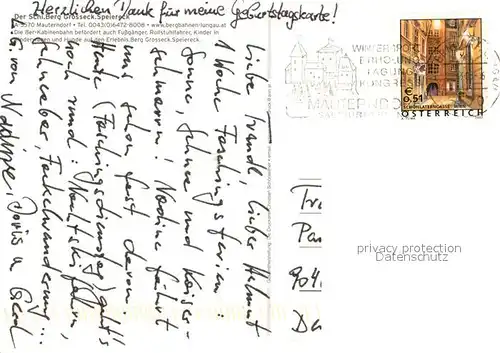 Herzlichen Dank für meine Geburtstagskarte!
Der Schi.Berg Grosseck.Speiereck
A-5570 Mauterndorf • Tel. 0043(0)6472-8008 • www.bergbahnen-lungau.at
•Die 8er-Kabinenbahn befördert auch Fußgänger, Rollstuhlfahrer, Kinder in
und Hunde auf den Erlebnis.Berg Grosseck.Speiereck.
Liebe Traudl, lieber Helmut
1 Woche Faschingsferien
Sonne, Schnee und Kaiser-
schmarrn! Nadine fährt
uns schon fast davon
Heute (Faschingsdienstag) geht's
noch rund: Nachtskifahren,
Schneebar, Fackelwanderung...
LG von Nadine, Doris u. Gerd
WINTERSPORT
ERHOLUNG
TAGUNG
KONGRESS
MAUTERNDORF
€ 0,51
SCHÖNLATERNGASSE
ÖSTERREICH
Tra
Pa
904
Da
privacy protection
Datenschutz